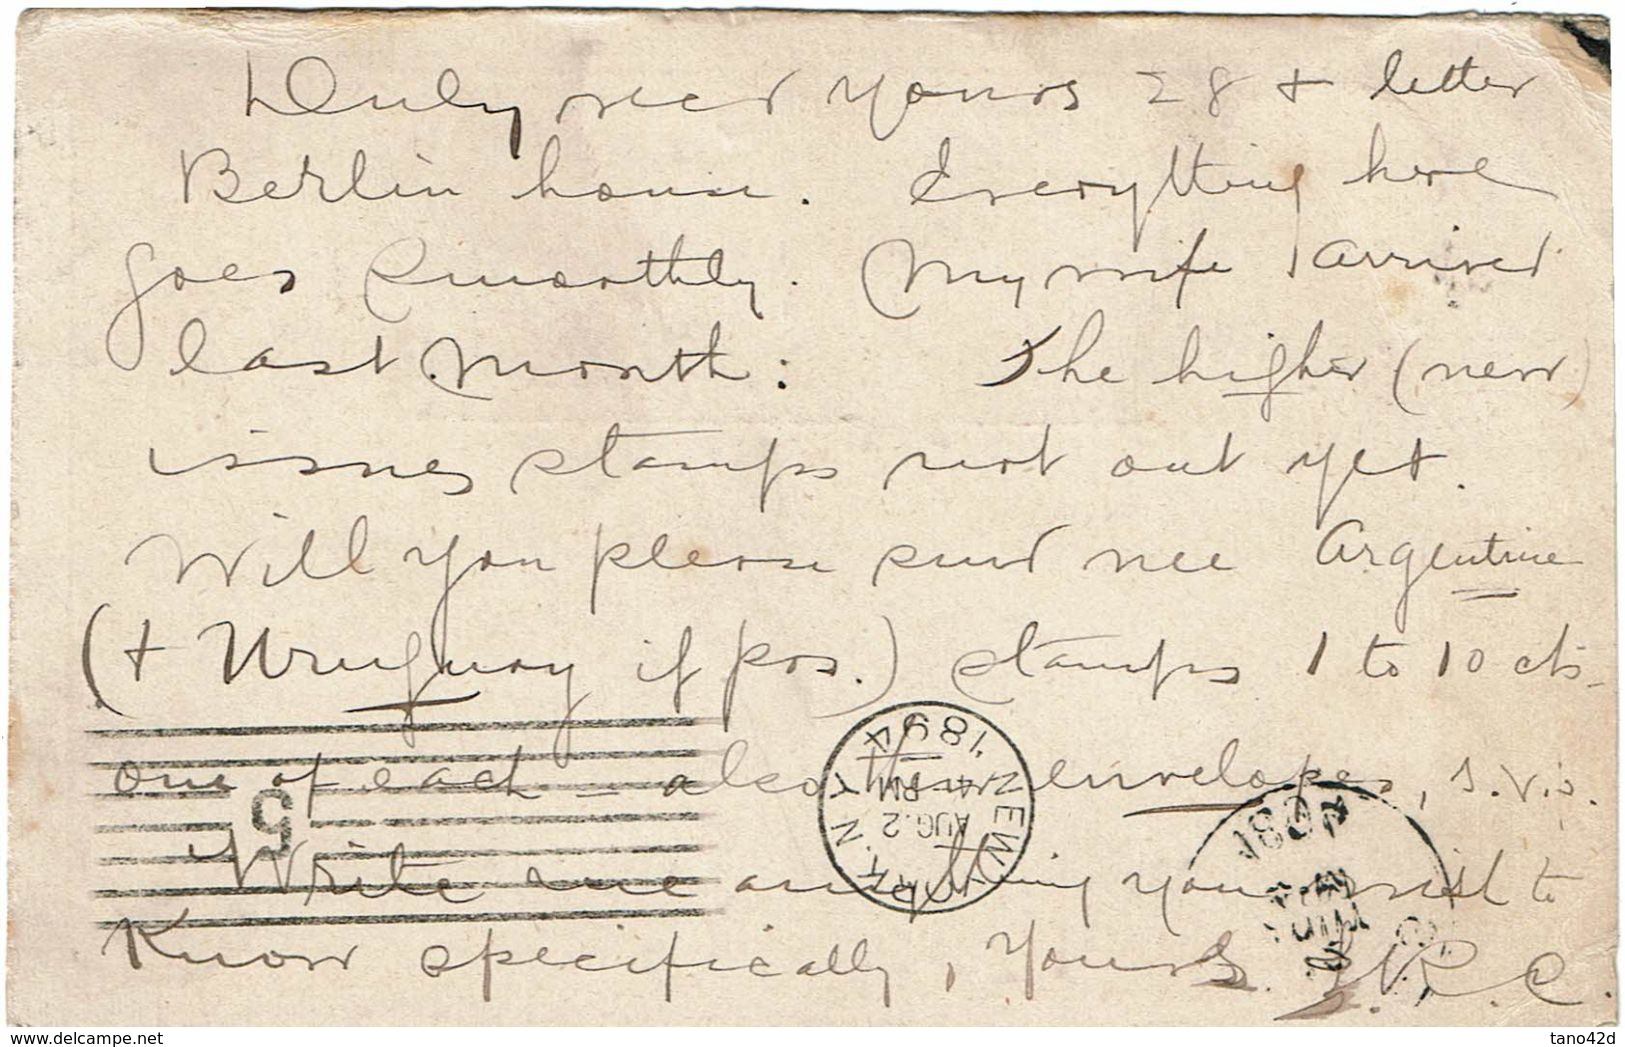 Duly rec'd yours 28 + letter
Berlin house. Everything here
goes smoothly. My wife arrived
last month: The higher (new)
issues stamps not out yet.
Will you please send me Argentine
(+ Uruguay if pos.) stamps 1 to 10 cts.
one of each - also envelopes, s.v.s.
Write me anything you wish to
know specifically, Yours J.R.C.
NEW YORK N.Y.
AUG. 2
4 PM
1894
5
tano42d